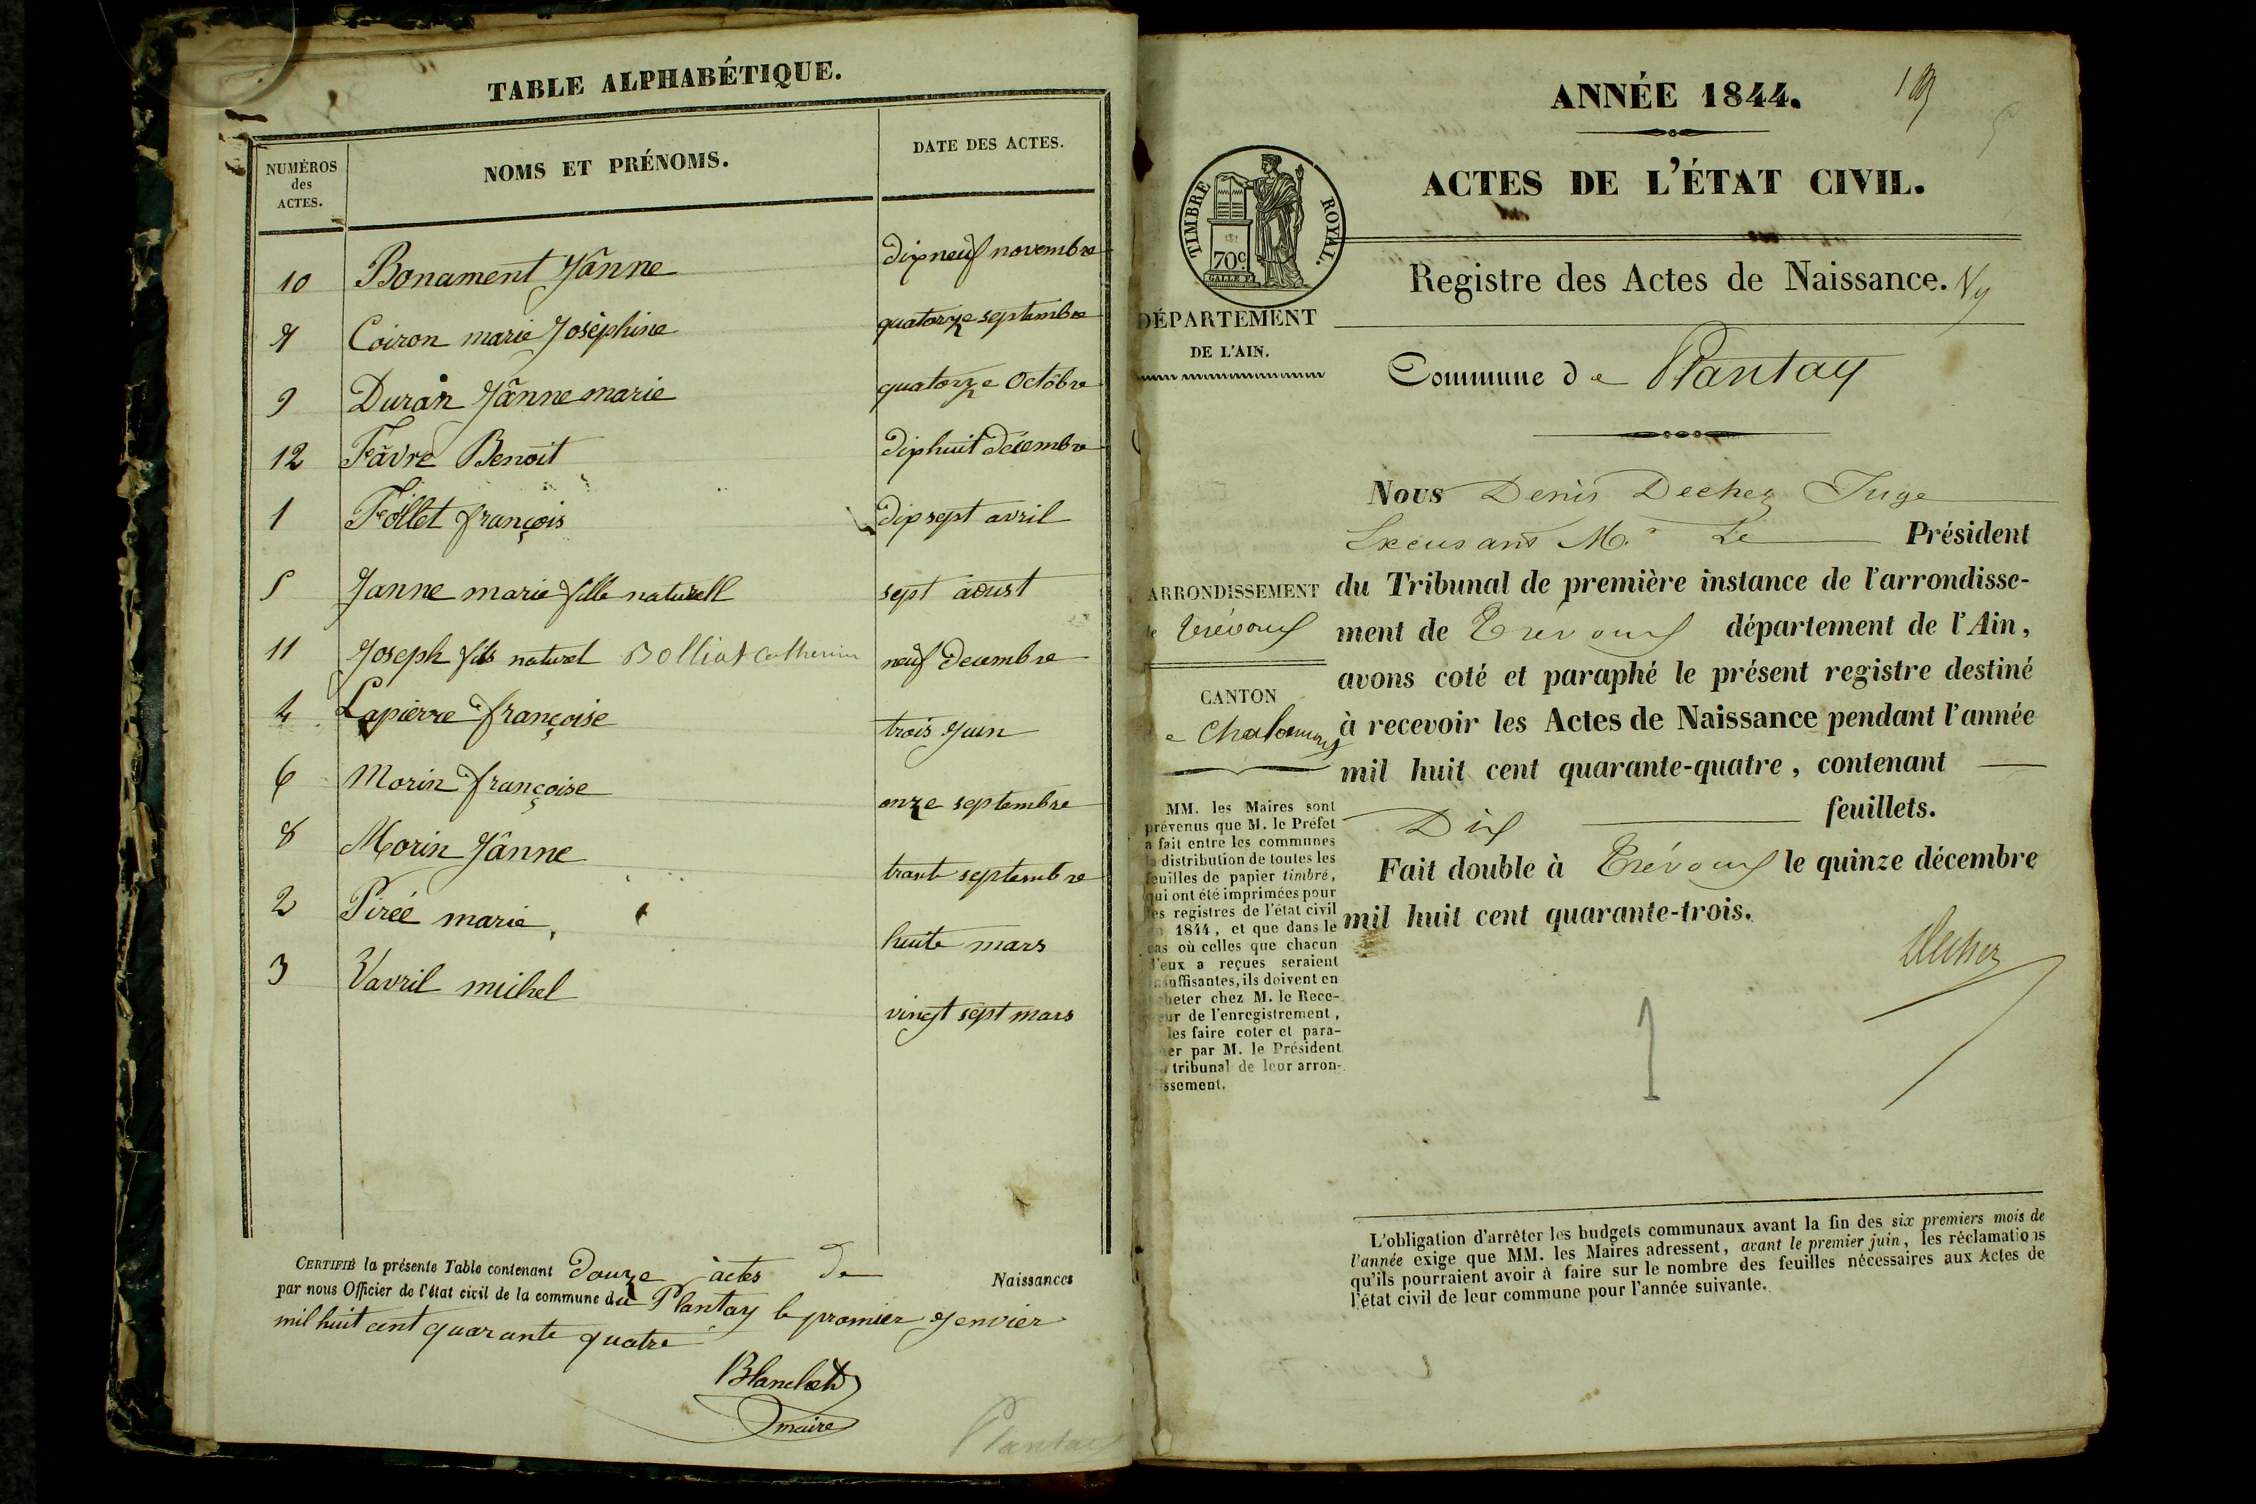 TABLE ALPHABÉTIQUE.
NUMÉROS des ACTES.
NOMS ET PRÉNOMS.
DATE DES ACTES.
10 Bonament Jânne dixneuf novembre
7 Coiron marie Joséphine quatorze septembre
9 Duran Jânne marie quatorze Octobre
12 Favre Benoit dixhuit décembre
1 Föllet françois dixsept avril
5 Janne marie fille naturell sept aoust
11 Joseph fils naturel Bolliat Catherine neuf decembre
4 Lapierre françoise trois Juin
6 Morin françoise onze septembre
8 Morin Jânne trante septembre
2 Pirée marie huite mars
3 Vavril michel vingt sept mars
CERTIFIÉ la présente Table contenant douze actes de Naissances
par nous Officier de l'état civil de la commune du Plantay le premier Jenvier
mil huit cent quarante quatre
Blanchet
maire
Plantay
ANNÉE 1844.
ACTES DE L'ÉTAT CIVIL.
TIMBRE ROYAL.
70c
Registre des Actes de Naissance.
DÉPARTEMENT
DE L'AIN.
Commune de Plantay
Nous Denis Dechez Juge
Excusans Mr. Le Président
du Tribunal de première instance de l'arrondisse-
ment de Trevoux département de l'Ain,
avons coté et paraphé le présent registre destiné
à recevoir les Actes de Naissance pendant l'année
mil huit cent quarante-quatre, contenant
Dix feuillets.
Fait double à Trévoux le quinze décembre
mil huit cent quarante-trois.
Dechez
1
ARRONDISSEMENT
de Trévoux
CANTON
e Chalamont
MM. les Maires sont
prévenus que M. le Préfet
a fait entre les communes
la distribution de toutes les
feuilles de papier timbré,
qui ont été imprimées pour
les registres de l'état civil
1844, et que dans le
cas où celles que chacun
d'eux a reçues seraient
insuffisantes, ils doivent en
acheter chez M. le Rece-
veur de l'enregistrement,
les faire coter et para-
pher par M. le Président
du tribunal de leur arron-
dissement.
L'obligation d'arrêter les budgets communaux avant la fin des six premiers mois de
l'année exige que MM. les Maires adressent, avant le premier juin, les réclamations
qu'ils pourraient avoir à faire sur le nombre des feuilles nécessaires aux Actes de
l'état civil de leur commune pour l'année suivante.